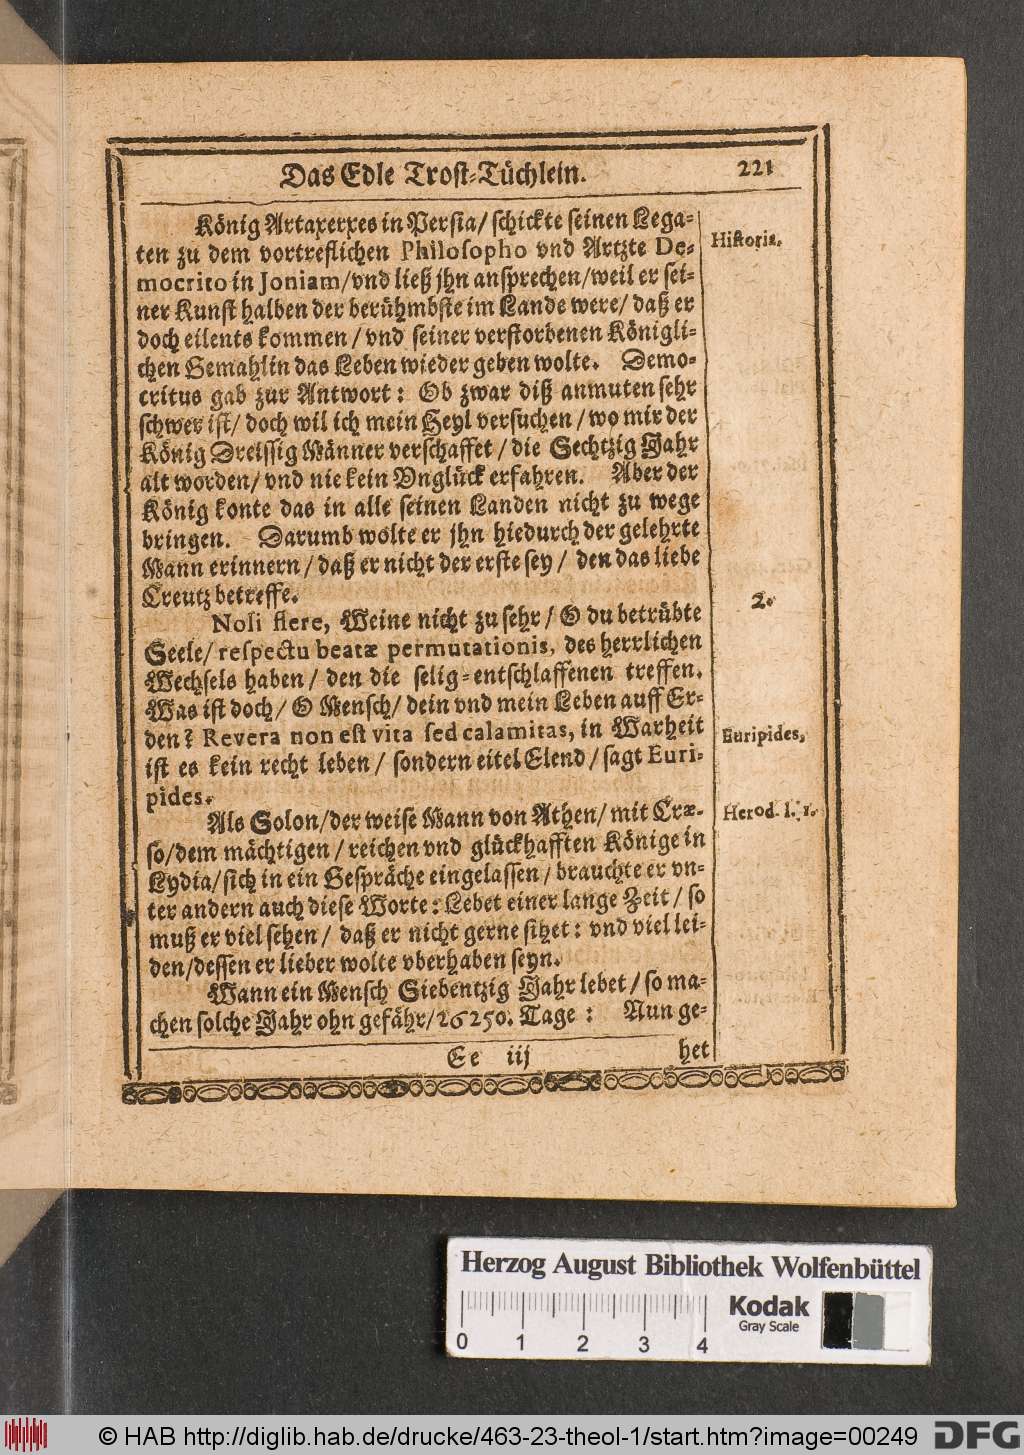 Das Edle Trost-Tüchlein.
221
König Artaxerxes in Persia/ schickte seinen Lega-
ten zu dem vortreflichen Philosopho vnd Artzte De-
mocrito in Joniam/vnd ließ jhn ansprechen/weil er sei-
ner Kunst halben der berühmbste im Lande were/ daß er
doch eilents kommen/ vnd seiner verstorbenen Königli-
chen Gemahlin das Leben wieder geben wolte. Demo-
critus gab zur Antwort: Ob zwar diß anmuten sehr
schwer ist/ doch wil ich mein Heyl versuchen/ wo mir der
König Dreissig Männer verschaffet/ die Sechtzig Jahr
alt worden/ vnd nie kein Vnglück erfahren. Aber der
König konte das in alle seinen Landen nicht zu wege
bringen. Darumb wolte er jhn hiedurch der gelehrte
Mann erinnern/ daß er nicht der erste sey/ den das liebe
Creutz betreffe.
Noli flere, Weine nicht zu sehr/ O du betrübte
Seele/ respectu beatæ permutationis, des herrlichen
Wechsels haben/ den die selig-entschlaffenen treffen.
Was ist doch/ O Mensch/ dein vnd mein Leben auff Er-
den? Revera non est vita sed calamitas, in Warheit
ist es kein recht leben/ sondern eitel Elend/ sagt Euri-
pides.
Als Solon/der weise Mann von Athen/ mit Cræ-
so/dem mächtigen/ reichen vnd glückhafften Könige in
Lydia/sich in ein Gespräche eingelassen/ brauchte er vn-
ter andern auch diese Worte: Lebet einer lange Zeit/ so
muß er viel sehen/ daß er nicht gerne sihet: vnd viel lei-
den/dessen er lieber wolte vberhaben seyn.
Wann ein Mensch Siebentzig Jahr lebet/ so ma-
chen solche Jahr ohn gefähr/26250. Tage: Nun ge-
Ee iij
het
Historia.
2.
Euripides.
Herod. l. 1.
Herzog August Bibliothek Wolfenbüttel
0 1 2 3 4
Kodak
Gray Scale
© HAB http://diglib.hab.de/drucke/463-23-theol-1/start.htm?image=00249
DFG